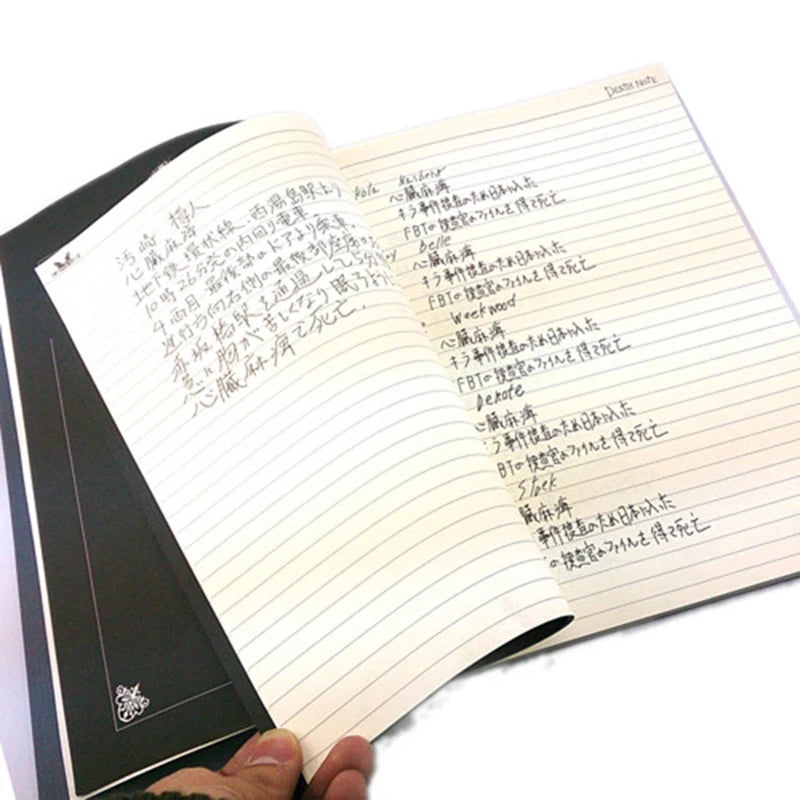 樽人
心臓麻痺
地下鉄環状線、西湯島駅より
10時26分発の内回り電車
4両目、最後部のドアより乗車
進行方向右側の最後部座席
赤坂橋駅を通過して
急に胸が苦しくなり眠るように
心臓麻痺で死亡.
DEATH NOTE
心臓麻痺
キラ事件捜査のため日本に入った
FBTの捜査官のファイルを得て死亡
Belle
心臓麻痺
キラ事件捜査のため日本に入った
FBTの捜査官のファイルを得て死亡
Weekwood
心臓麻痺
キラ事件捜査のため日本に入った
FBTの捜査官のファイルを得て死亡
Denote
心臓麻痺
キラ事件捜査のため日本に入った
BTの捜査官のファイルを得て死亡
Stack
臓麻痺
事件捜査のため日本に入った
の捜査官のファイルを得て死亡